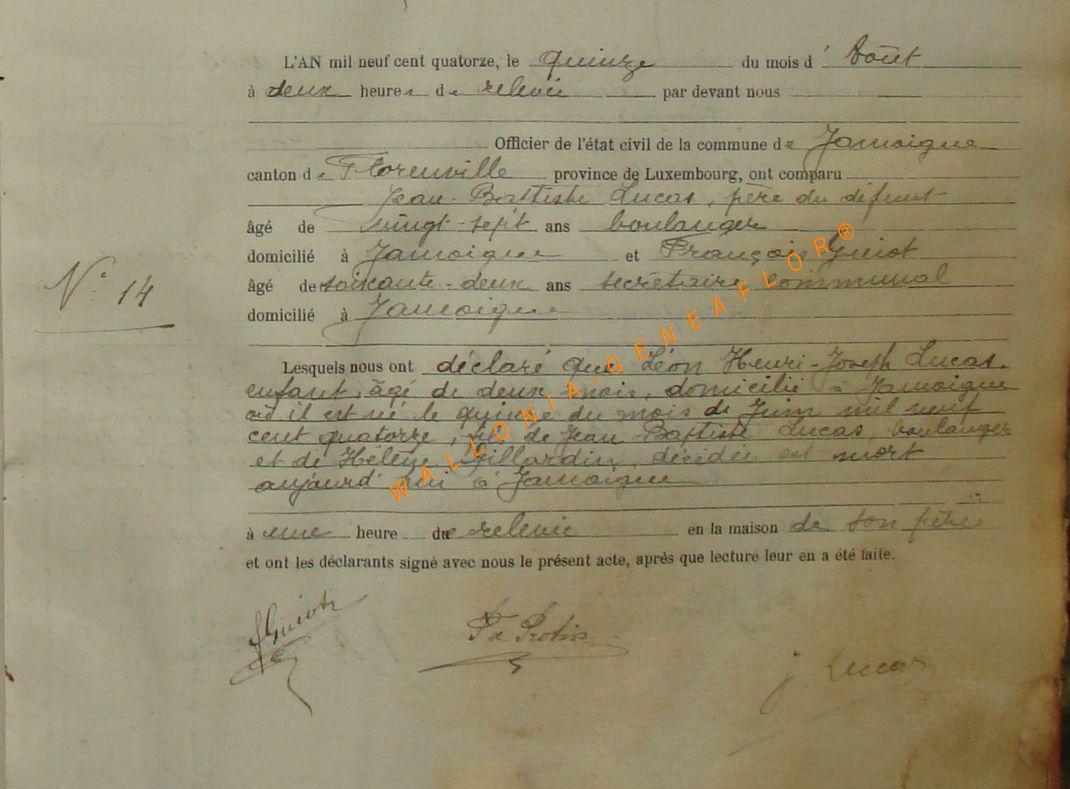 L'AN mil neuf cent quatorze, le quinze du mois d' Août
à deux heures de relevée par devant nous
Officier de l'état civil de la commune de Jamoigne
canton de Florenville province de Luxembourg, ont comparu
Jean-Baptiste Lucas, père du défunt
âgé de vingt-sept ans boulanger
domicilié à Jamoigne et François Guiot
N° 14
âgé de soixante-deux ans secrétaire communal
domicilié à Jamoigne
Lesquels nous ont déclaré que Léon Henri-Joseph Lucas,
enfant, âgé de deux mois, domicilié à Jamoigne
où il est né le quinze du mois de Juin mil neuf
cent quatorze, fils de Jean-Baptiste Lucas, boulanger
et de Hélène Gillardin, décédée est mort
aujourd'hui à Jamoigne
à une heure de relevée en la maison de son père
et ont les déclarants signé avec nous le présent acte, après que lecture leur en a été faite.
Guiot
J Lucas
WALLONIA-GENEAFLOR®